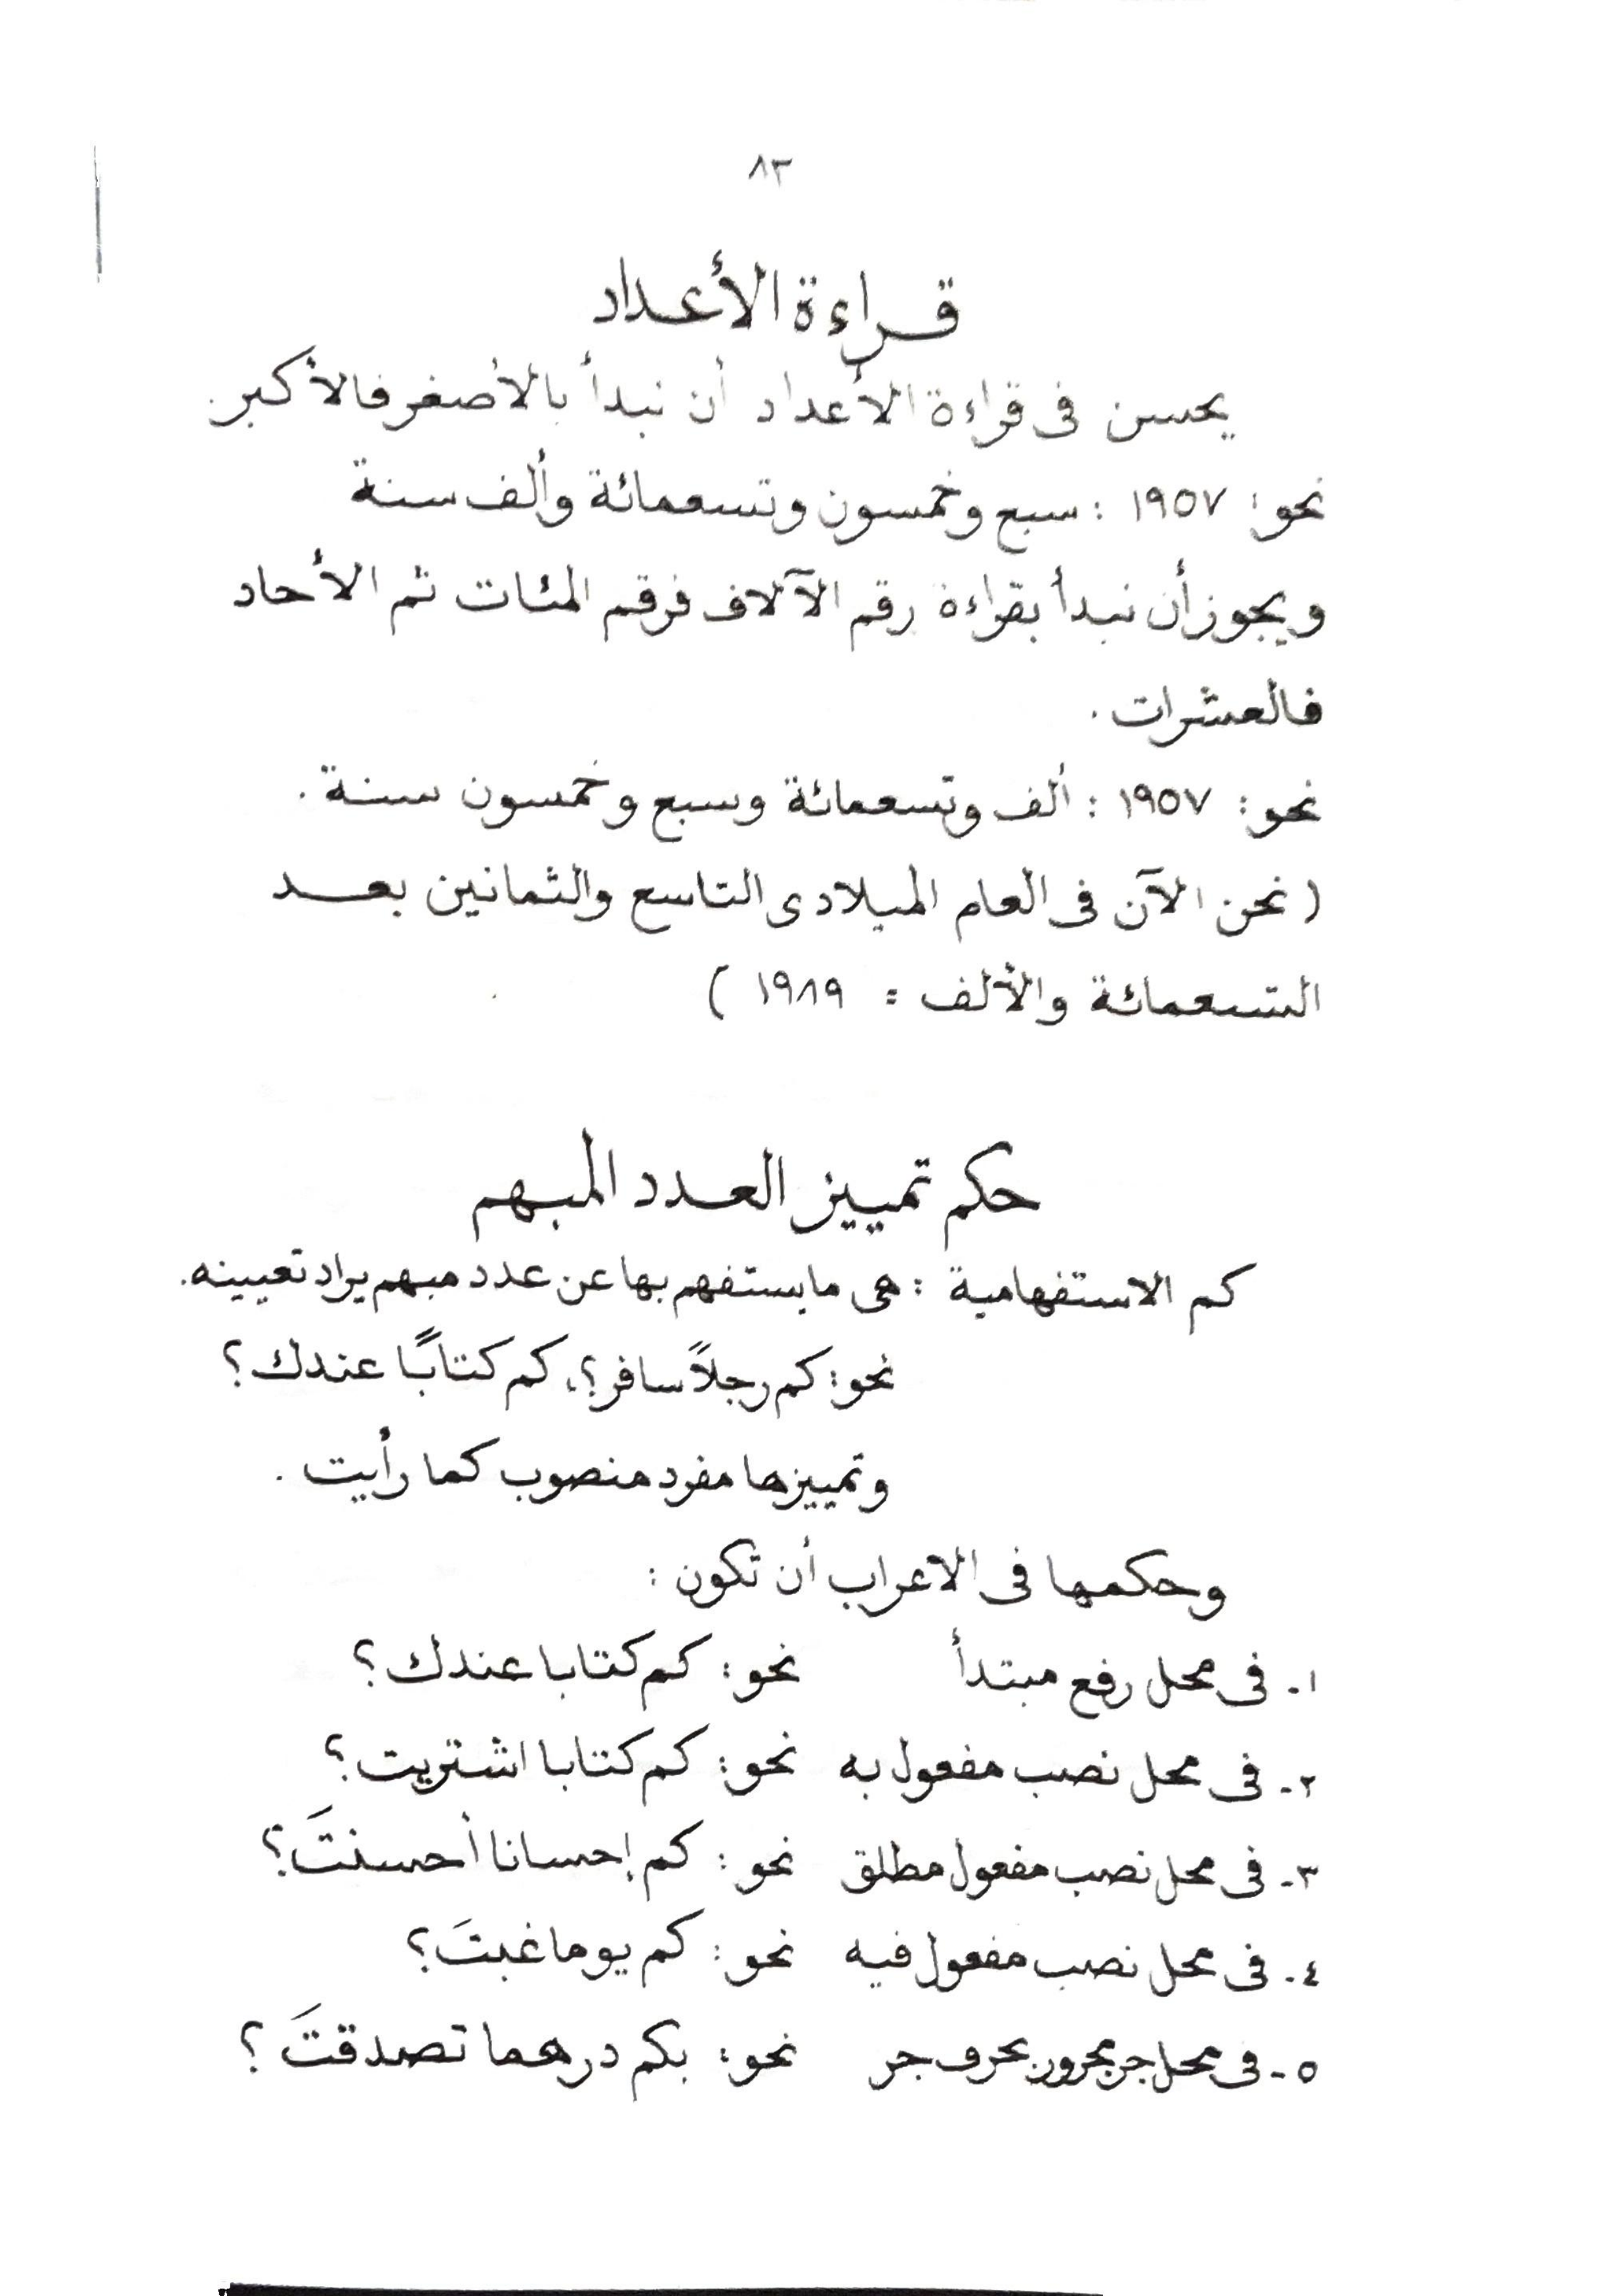 ٨٣
قراءة الأعداد
يحسن فى قراءة الأعداد أن نبدأ بالأصغر فالأكبر.
نحو: ١٩٥٧ : سبع وخمسون وتسعمائة وألف سنة
ويجوز أن نبدأ بقراءة رقم الآلاف فرقم المئات ثم الأحاد
فالعشرات .
نحو: ١٩٥٧ : ألف وتسعمائة وسبع وخمسون سنة .
( نحن الآن فى العام الميلادى التاسع والثمانين بعد
التسعمائة والألف = ١٩٨٩ )
حكم تمييز العدد المبهم
كم الاستفهامية : هى ما يستفهم بها عن عدد مبهم يراد تعيينه.
نحو: كم رجلاً سافر؟. كم كتابًا عندك؟
وتمييزها مفرد منصوب كما رأيت .
وحكمها فى الاعراب أن تكون :
١- فى محل رفع مبتدأ نحو: كم كتابا عندك؟
٢- فى محل نصب مفعول به نحو: كم كتابا اشتريت؟
٣- فى محل نصب مفعول مطلق نحو: كم إحسانا أحسنتَ؟
٤- فى محل نصب مفعول فيه نحو: كم يوما غبتَ؟
٥- فى محل جر مجرور بحرف جر نحو: بكم درهما تصدقتَ؟